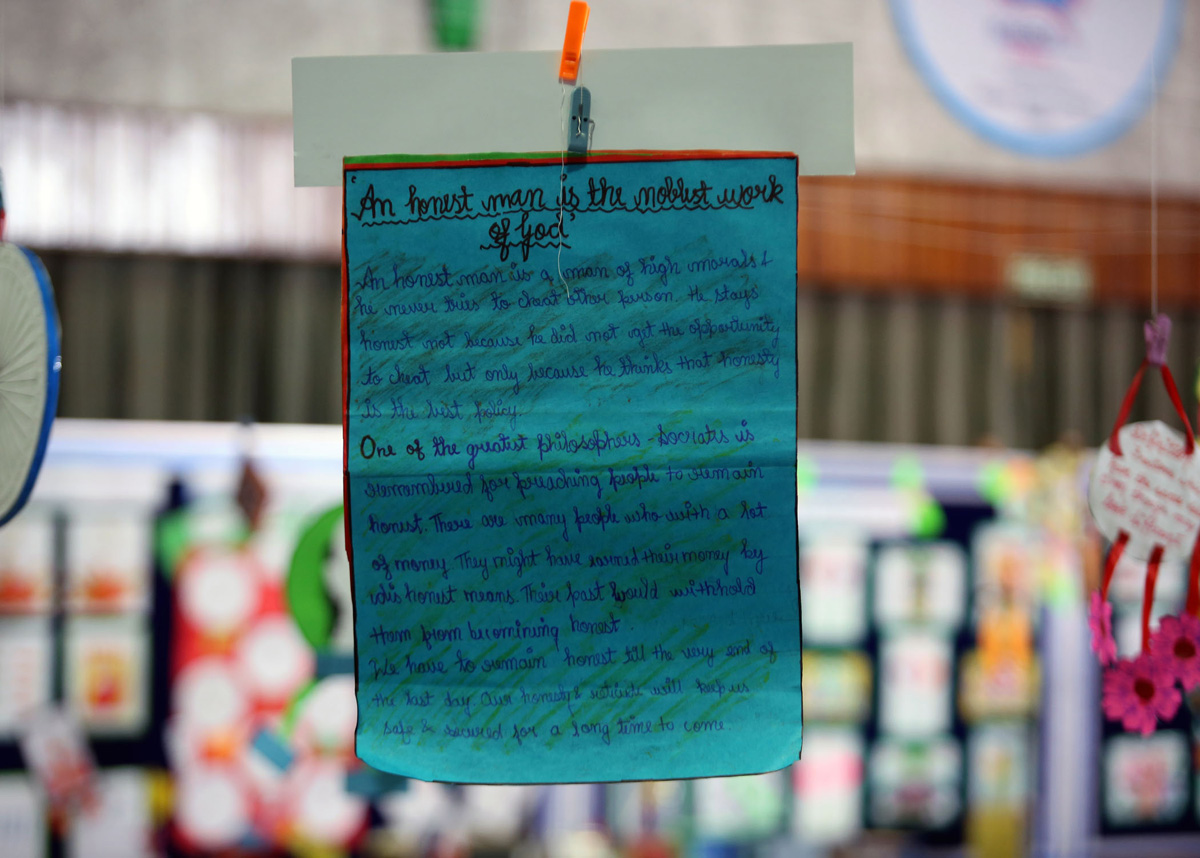 "An honest man is the noblest work
of God"
An honest man is a man of high morals &
he never tries to cheat other person. He stays
honest not because he did not get the opportunity
to cheat but only because he thinks that honesty
is the best policy.
One of the greatest philosophers - Socrates is
remembered for preaching people to remain
honest. There are many people who with a lot
of money. They might have earned their money by
dishonest means. Their past would withhold
them from becomining honest.
We have to remain honest till the very end of
the last day. Our honesty & will keep us
safe & secured for a long time to come.